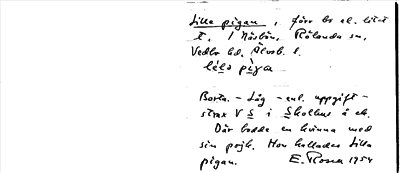 Lilla pigan, förr bs el. litet
t. i Norsbön, Rölanda sn,
Vedbo hd. Älvsb. l.
lɩ̀la pìga
Borta. - Låg - enl. uppgift -
strax V S i Skolhus å ek.
Där bodde en kvinna med
sin pojk. Hon kallades Lilla
pigan. E. Rosen 1954